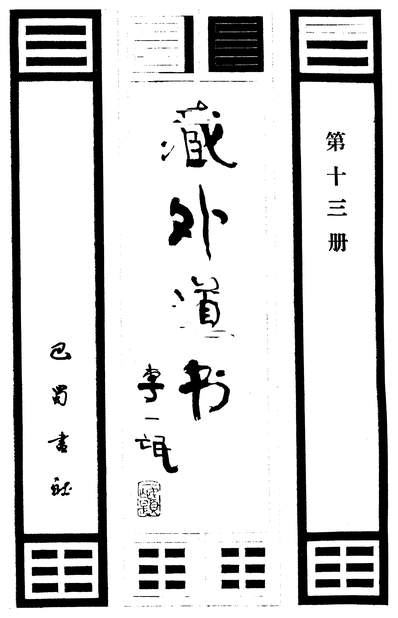 第十三册
藏外道书
李一氓
巴蜀书社